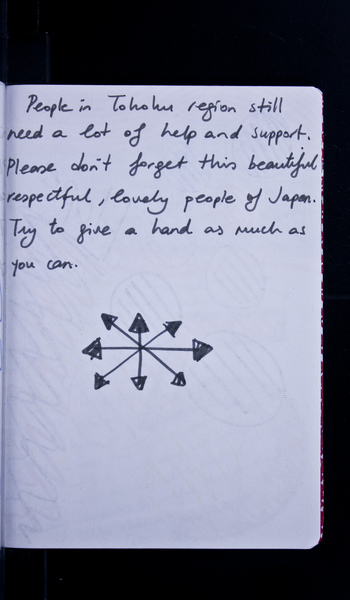 People in Tohoku region still
need a lot of help and support.
Please don't forget this beautiful
respectful, lovely people of Japan.
Try to give a hand as much as
you can.